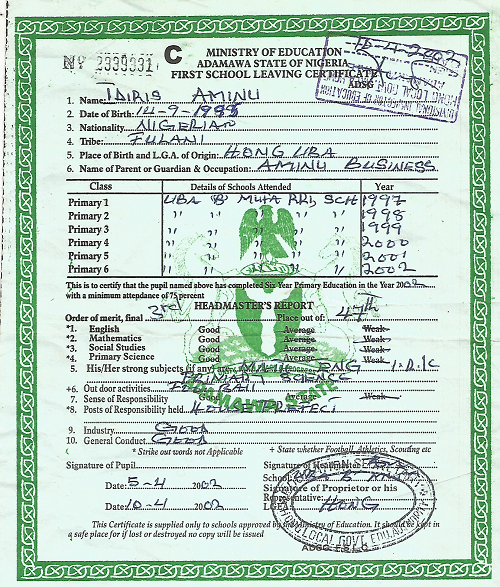 Nº 2339331
C MINISTRY OF EDUCATION
ADAMAWA STATE OF NIGERIA
FIRST SCHOOL LEAVING CERTIFICATE
ADSG
15-4-2002
1. Name: IDIRIS AMINU
2. Date of Birth: 14-9-1988
3. Nationality: NIGERIAN
4. Tribe: FULANI
5. Place of Birth and L.G.A. of Origin: HONG UBA
6. Name of Parent or Guardian & Occupation: AMINU BUSINESS
Class Details of Schools Attended Year
Primary 1 UBA 'B' MUFA PRI, SCH 1997
Primary 2 " " " " " 1998
Primary 3 " " " " " 1999
Primary 4 " " " " " 2000
Primary 5 " " " " " 2001
Primary 6 " " " " " 2002
This is to certify that the pupil named above has completed Six Year Primary Education in the Year 2002
with a minimum attendance of 75 percent
HEADMASTER'S REPORT
Order of merit, final 3rd Place out of: 47th
*1. English Good Average Weak
*2. Mathematics Good Average Weak
*3. Social Studies Good Average Weak
*4. Primary Science Good Average Weak
5. His/Her strong subjects (if any) are MATH, ENG I.R.K
PRIMARY SCIENCE
+6. Out door activities FOOT BALL
7. Sense of Responsibility Good Average Weak
*8. Posts of Responsibility held HOUSE
9. Industry GOOD
10. General Conduct GOOD
* Strike out words not Applicable + State whether Football, Athletics, Scouting etc
Signature of Pupil Signature of Headmaster
School: UBA B
Date: 5-4 2002 Signature of Proprietor or his
Representative:
Date: 10-4 2002 LGEA: HONG
This Certificate is supplied only to schools approved by the Ministry of Education. It should be kept in
a safe place for if lost or destroyed no copy will be issued